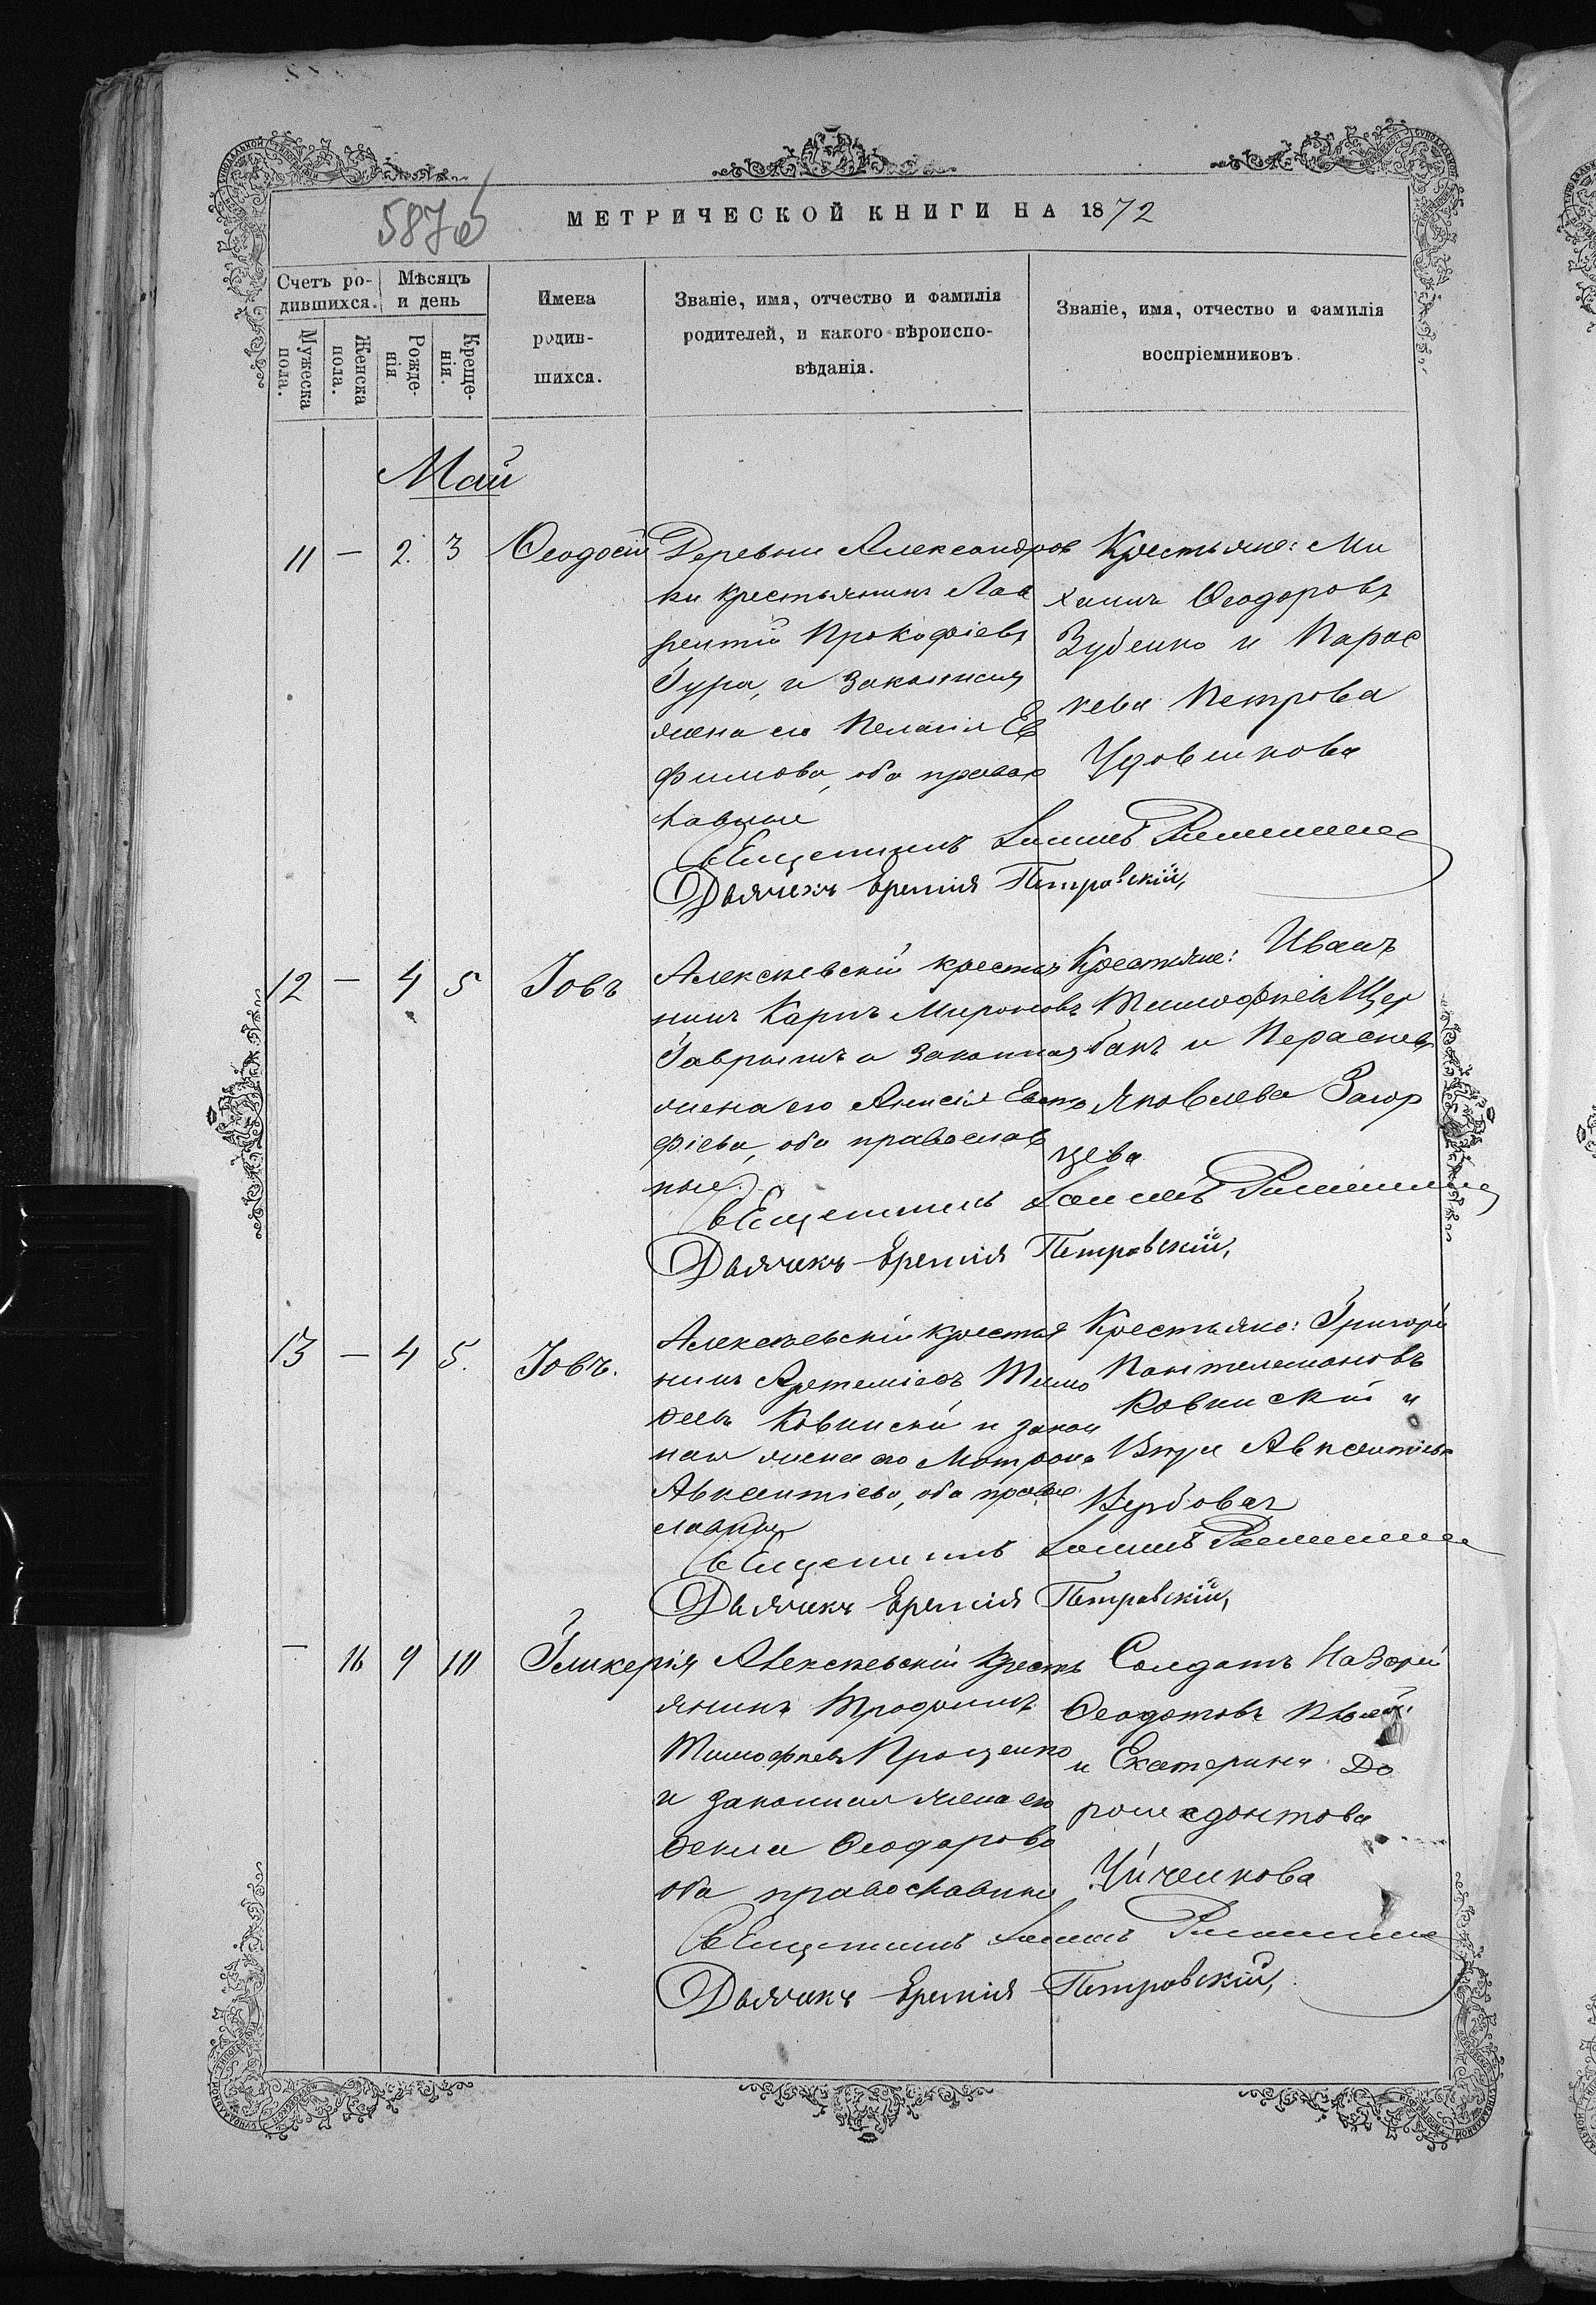 587 об
МЕТРИЧЕСКОЙ КНИГИ НА 1872
Счетъ ро-
дившихся.
Мужеска пола.
Женска пола.
Мѣсяцъ
и день
Рожде-
нія
Креще-
нія.
Имена
родив-
шихся.
Званіе, имя, отчество и фамилія
родителей, и какого вѣроиспо-
вѣданія.
Званіе, имя, отчество и фамилія
воспріемниковъ.
Май
11 — 2. 3 Ѳеодосій
Деревни Александров
ки крестьянинъ Лав
рентій Прокофіевъ
Гура, и законная
жена его Пелагія Ев
фимова, оба правос
лавные
Крестьяне: Ми
хаилъ Ѳеодоровъ
Зубенко и Парас
кева Петрова
Удовикова
Священникъ
Дьячекъ Еремія Петровскій,
12 — 4 5 Іовъ
Алексѣевскій крестья
нинъ Карпъ Мироновъ
Гаврышъ и законная
жена его Анисія Евст
фіева, оба православ
ные.
Крестьяне: Иванъ
Тимофѣевъ Щер
бакъ и Параскев
Яковлева Загор
цева
Священникъ
Дьячекъ Еремія Петровскій,
13 — 4 5. Іовъ.
Алексѣевскій крестья
нинъ Артемій Тимо
феевъ Ковинскій и закон
ная жена его Матрона
Авксентіева, оба право
славны
Крестьяне: Григорій
Пантелемоновъ
Ковинскій и
Авксентіева
Вербовая
Священникъ
Дьячекъ Еремія Петровскій,
— 16 9 10 Гликерія
Алексѣевскій Кресть
янинъ Трофимъ
Тимофѣевъ Проценко
и законная жена его
Ѳекла Ѳеодорова
оба православные
Солдатъ Назарій
Ѳеодотовъ
и Екатерина До
римедонтова
Уйченкова
Священникъ
Дьячекъ Еремія Петровскій,